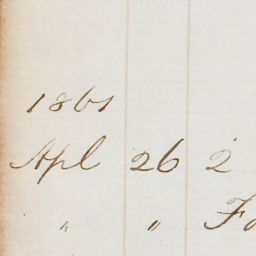 1861
Apl 26 2
" "